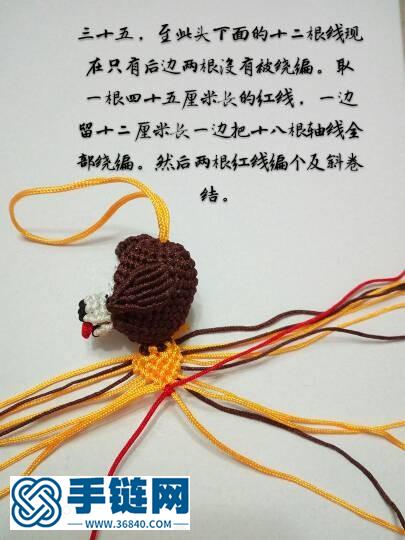 三十五，至此头下面的十二根线现
在只有后边两根没有被绕编。取
一根四十五厘米长的红线，一边
留十二厘米长一边把十八根轴线全
部绕编。然后两根红线编个反斜卷
结。
手链网
WWW.36840.COM